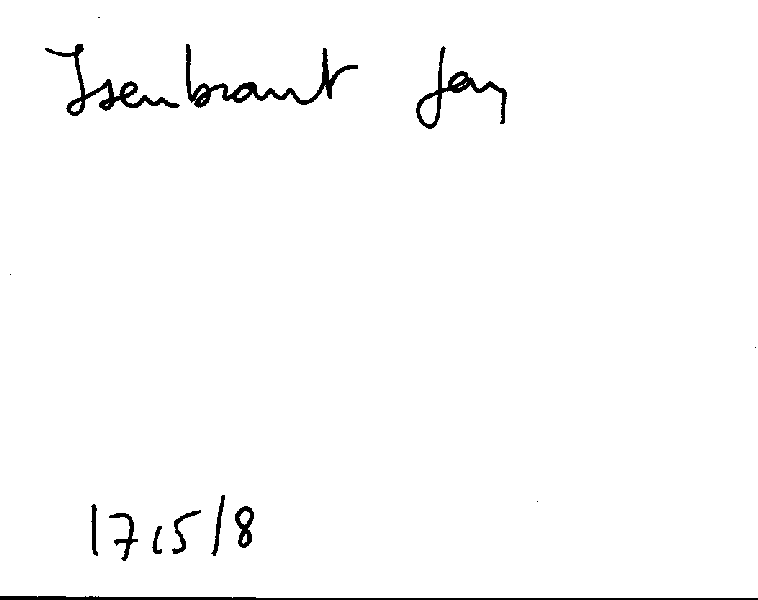 Isenbrant Jan
1715/8